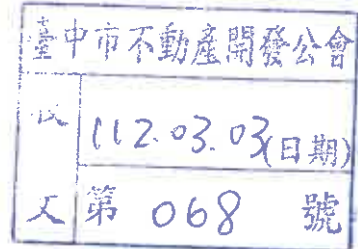 臺中市不動產開發公會
收文
112.03.03(日期)
第 068 號